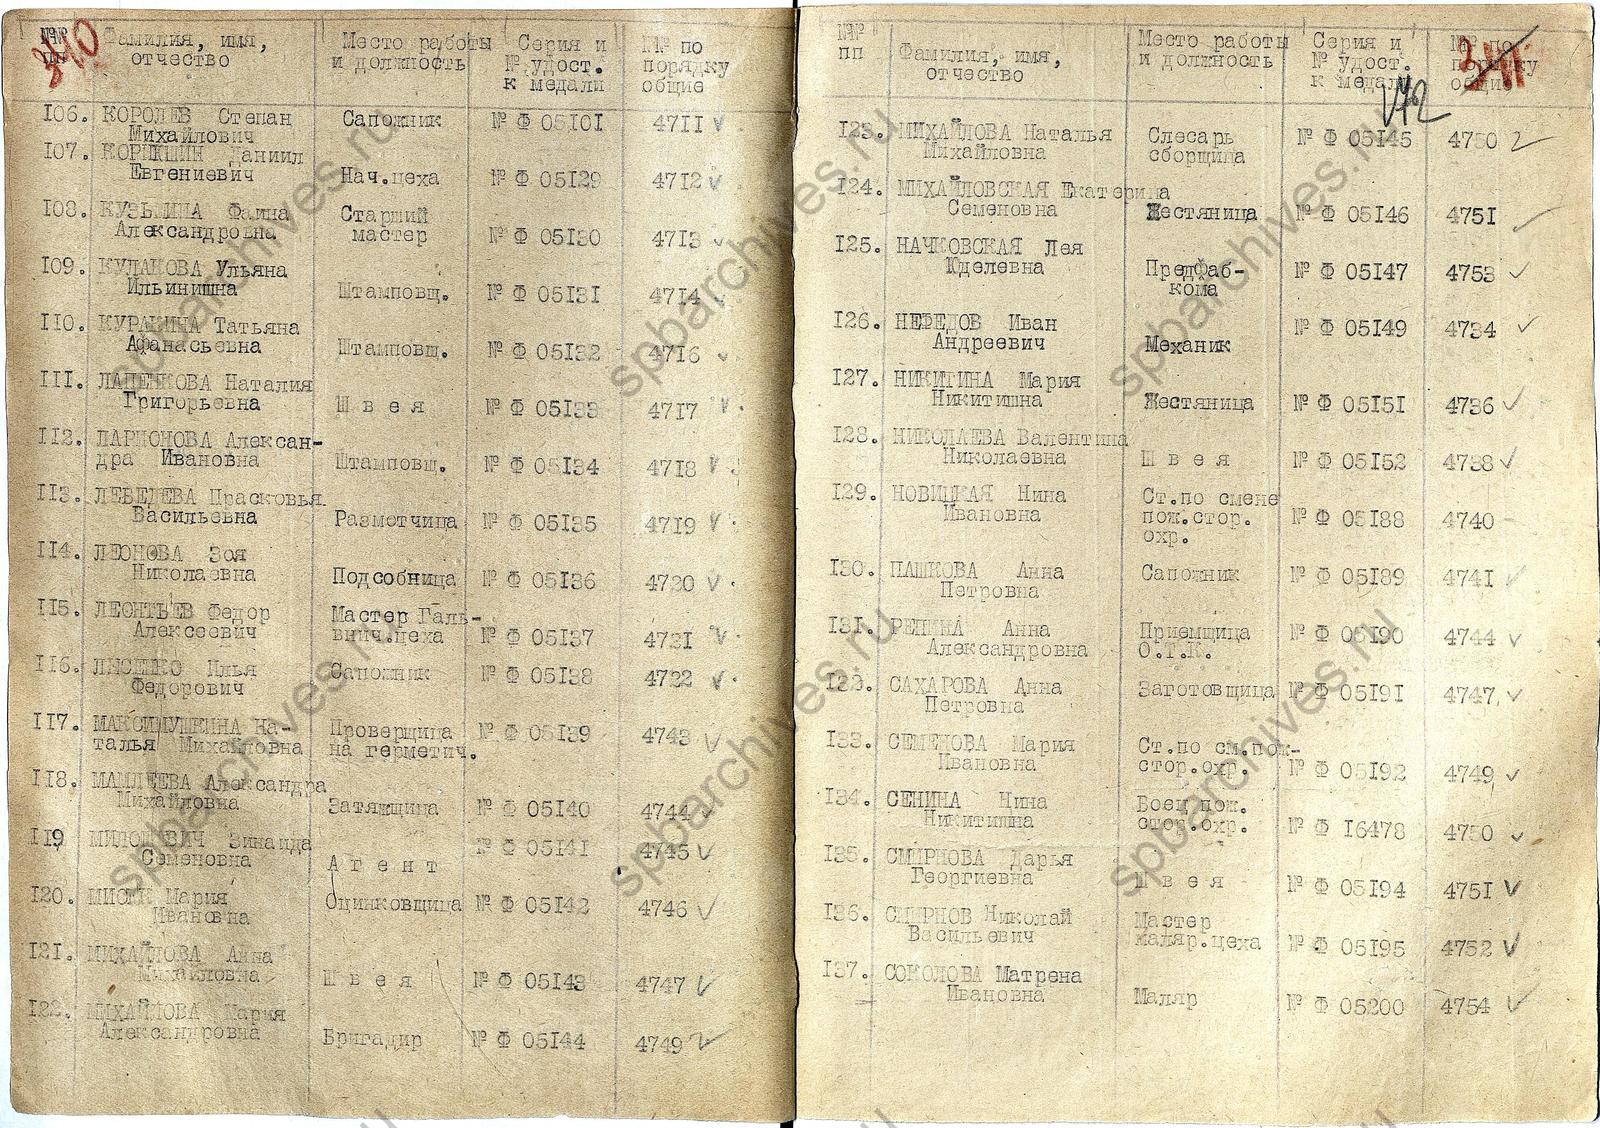 340
№№ пп
Фамилия, имя, отчество
Место работы и должность
Серия и № удост. к медали
№№ по порядку общие
106. КОРОЛЕВ Степан Михайлович Сапожник № Ф 05101 4711
107. КОРИКШИН Даниил Евгениевич Нач.цеха № Ф 05129 4712
108. КУЗЬМИНА Фаина Александровна Старший мастер № Ф 05130 4713
109. КУЛАКОВА Ульяна Ильинишна Штамповщ. № Ф 05131 4714
110. КУРАКИНА Татьяна Афанасьевна Штамповщ. № Ф 05132 4716
111. ЛАПЕНКОВА Наталия Григорьевна Швея № Ф 05133 4717
112. ЛАРИОНОВА Алексан-
дра Ивановна Штамповщ. № Ф 05134 4718
113. ЛЕБЕДЕВА Прасковья Васильевна Разметчица № Ф 05135 4719
114. ЛЕОНОВА Зоя Николаевна Подсобница № Ф 05136 4720
115. ЛЕОНТЬЕВ Федор Алексеевич Мастер Галь-
внич.цеха № Ф 05137 4721
116. ЛЫСЕНКО Илья Федорович Сапожник № Ф 05138 4722
117. МАКСИМУШКИНА На-
талья Михайловна Проверщица на герметич. № Ф 05139 4743
118. МАМЛЕЕВА Александра Михайловна Затяжщица № Ф 05140 4744
119 МИЛОШЕВИЧ Зинаида Семеновна Агент № Ф 05141 4745
120. Мария Ивановна Оцинковщица № Ф 05142 4746
121. МИХАЙЛОВА Анна Михайловна Швея № Ф 05143 4747
122. МИХАЙЛОВА Мария Александровна Бригадир № Ф 05144 4749
№№ пп
Фамилия, имя, отчество
Место работы и должность
Серия и № удост. к медали
№№ по порядку общие
341
172
123. МИХАЙЛОВА Наталья Михайловна Слесарь сборщица № Ф 05145 4750
124. МИХАЙЛОВСКАЯ Екатерина Семеновна Жестяница № Ф 05146 4751
125. НАЧКОВСКАЯ Лея Юделевна Предфаб-
кома № Ф 05147 4753
126. НЕФЕДОВ Иван Андреевич Механик № Ф 05149 4734
127. НИКИТИНА Мария Никитишна Жестяница № Ф 05151 4736
128. НИКОЛАЕВА Валентина Николаевна Швея № Ф 05152 4738
129. НОВИЦКАЯ Нина Ивановна Ст.по смене пож.стор. охр. № Ф 05188 4740
130. ПАШКОВА Анна Петровна Сапожник № Ф 05189 4741
131. РЕПИНА Анна Александровна Приемщица О.Т.К. № Ф 05190 4744
132. САХАРОВА Анна Петровна Заготовщица № Ф 05191 4747
133. СЕМЕНОВА Мария Ивановна Ст.по см.пож-
стор.охр. № Ф 05192 4749
134. СЕНИНА Нина Никитишна Боец пож. стор.охр. № Ф 16478 4750
135. СМИРНОВА Дарья Георгиевна Швея № Ф 05194 4751
136. СМИРНОВ Николай Васильевич Мастер маляр.цеха № Ф 05195 4752
137. СОКОЛОВА Матрена Ивановна Маляр № Ф 05200 4754
spbarchives.ru
spbarchives.ru
spbarchives.ru
spbarchives.ru
spbarchives.ru
spbarchives.ru